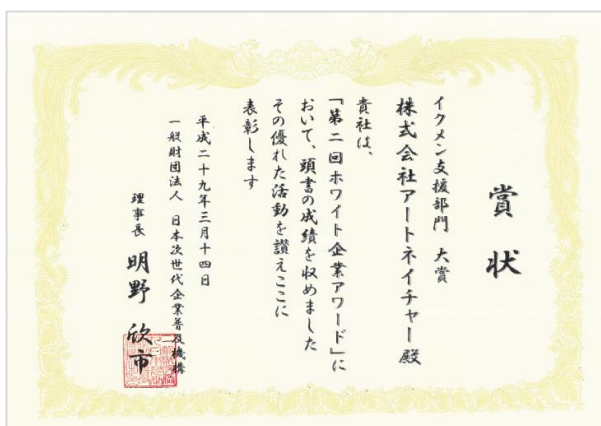 賞状
イクメン支援部門 大賞
株式会社アートネイチャー殿
貴社は、
「第二回ホワイト企業アワード」に
おいて、頭書の成績を収めました
その優れた活動を讃えここに
表彰します
平成二十九年三月十四日
一般財団法人 日本次世代企業普及機構
理事長 明野欣市